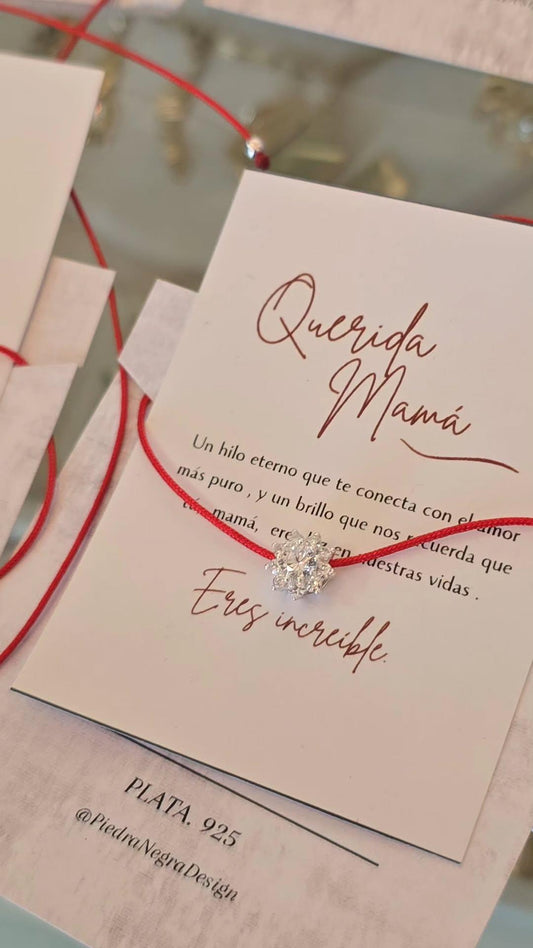 Querida
Mamá
Un hilo eterno que te conecta con el amor
más puro , y un brillo que nos recuerda que
tú, mamá, eres en nuestras vidas .
Eres increíble.
PLATA. 925
@PiedraNegraDesign